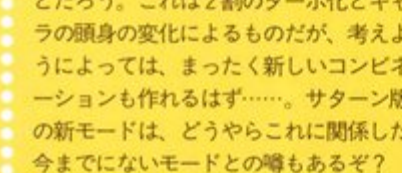 とだろう。これは2割のターボ化とキャ
ラの頭身の変化によるものだが、考えよ
うによっては、まったく新しいコンビネ
ーションも作れるはず……。サターン版
の新モードは、どうやらこれに関係した
今までにないモードとの噂もあるぞ？